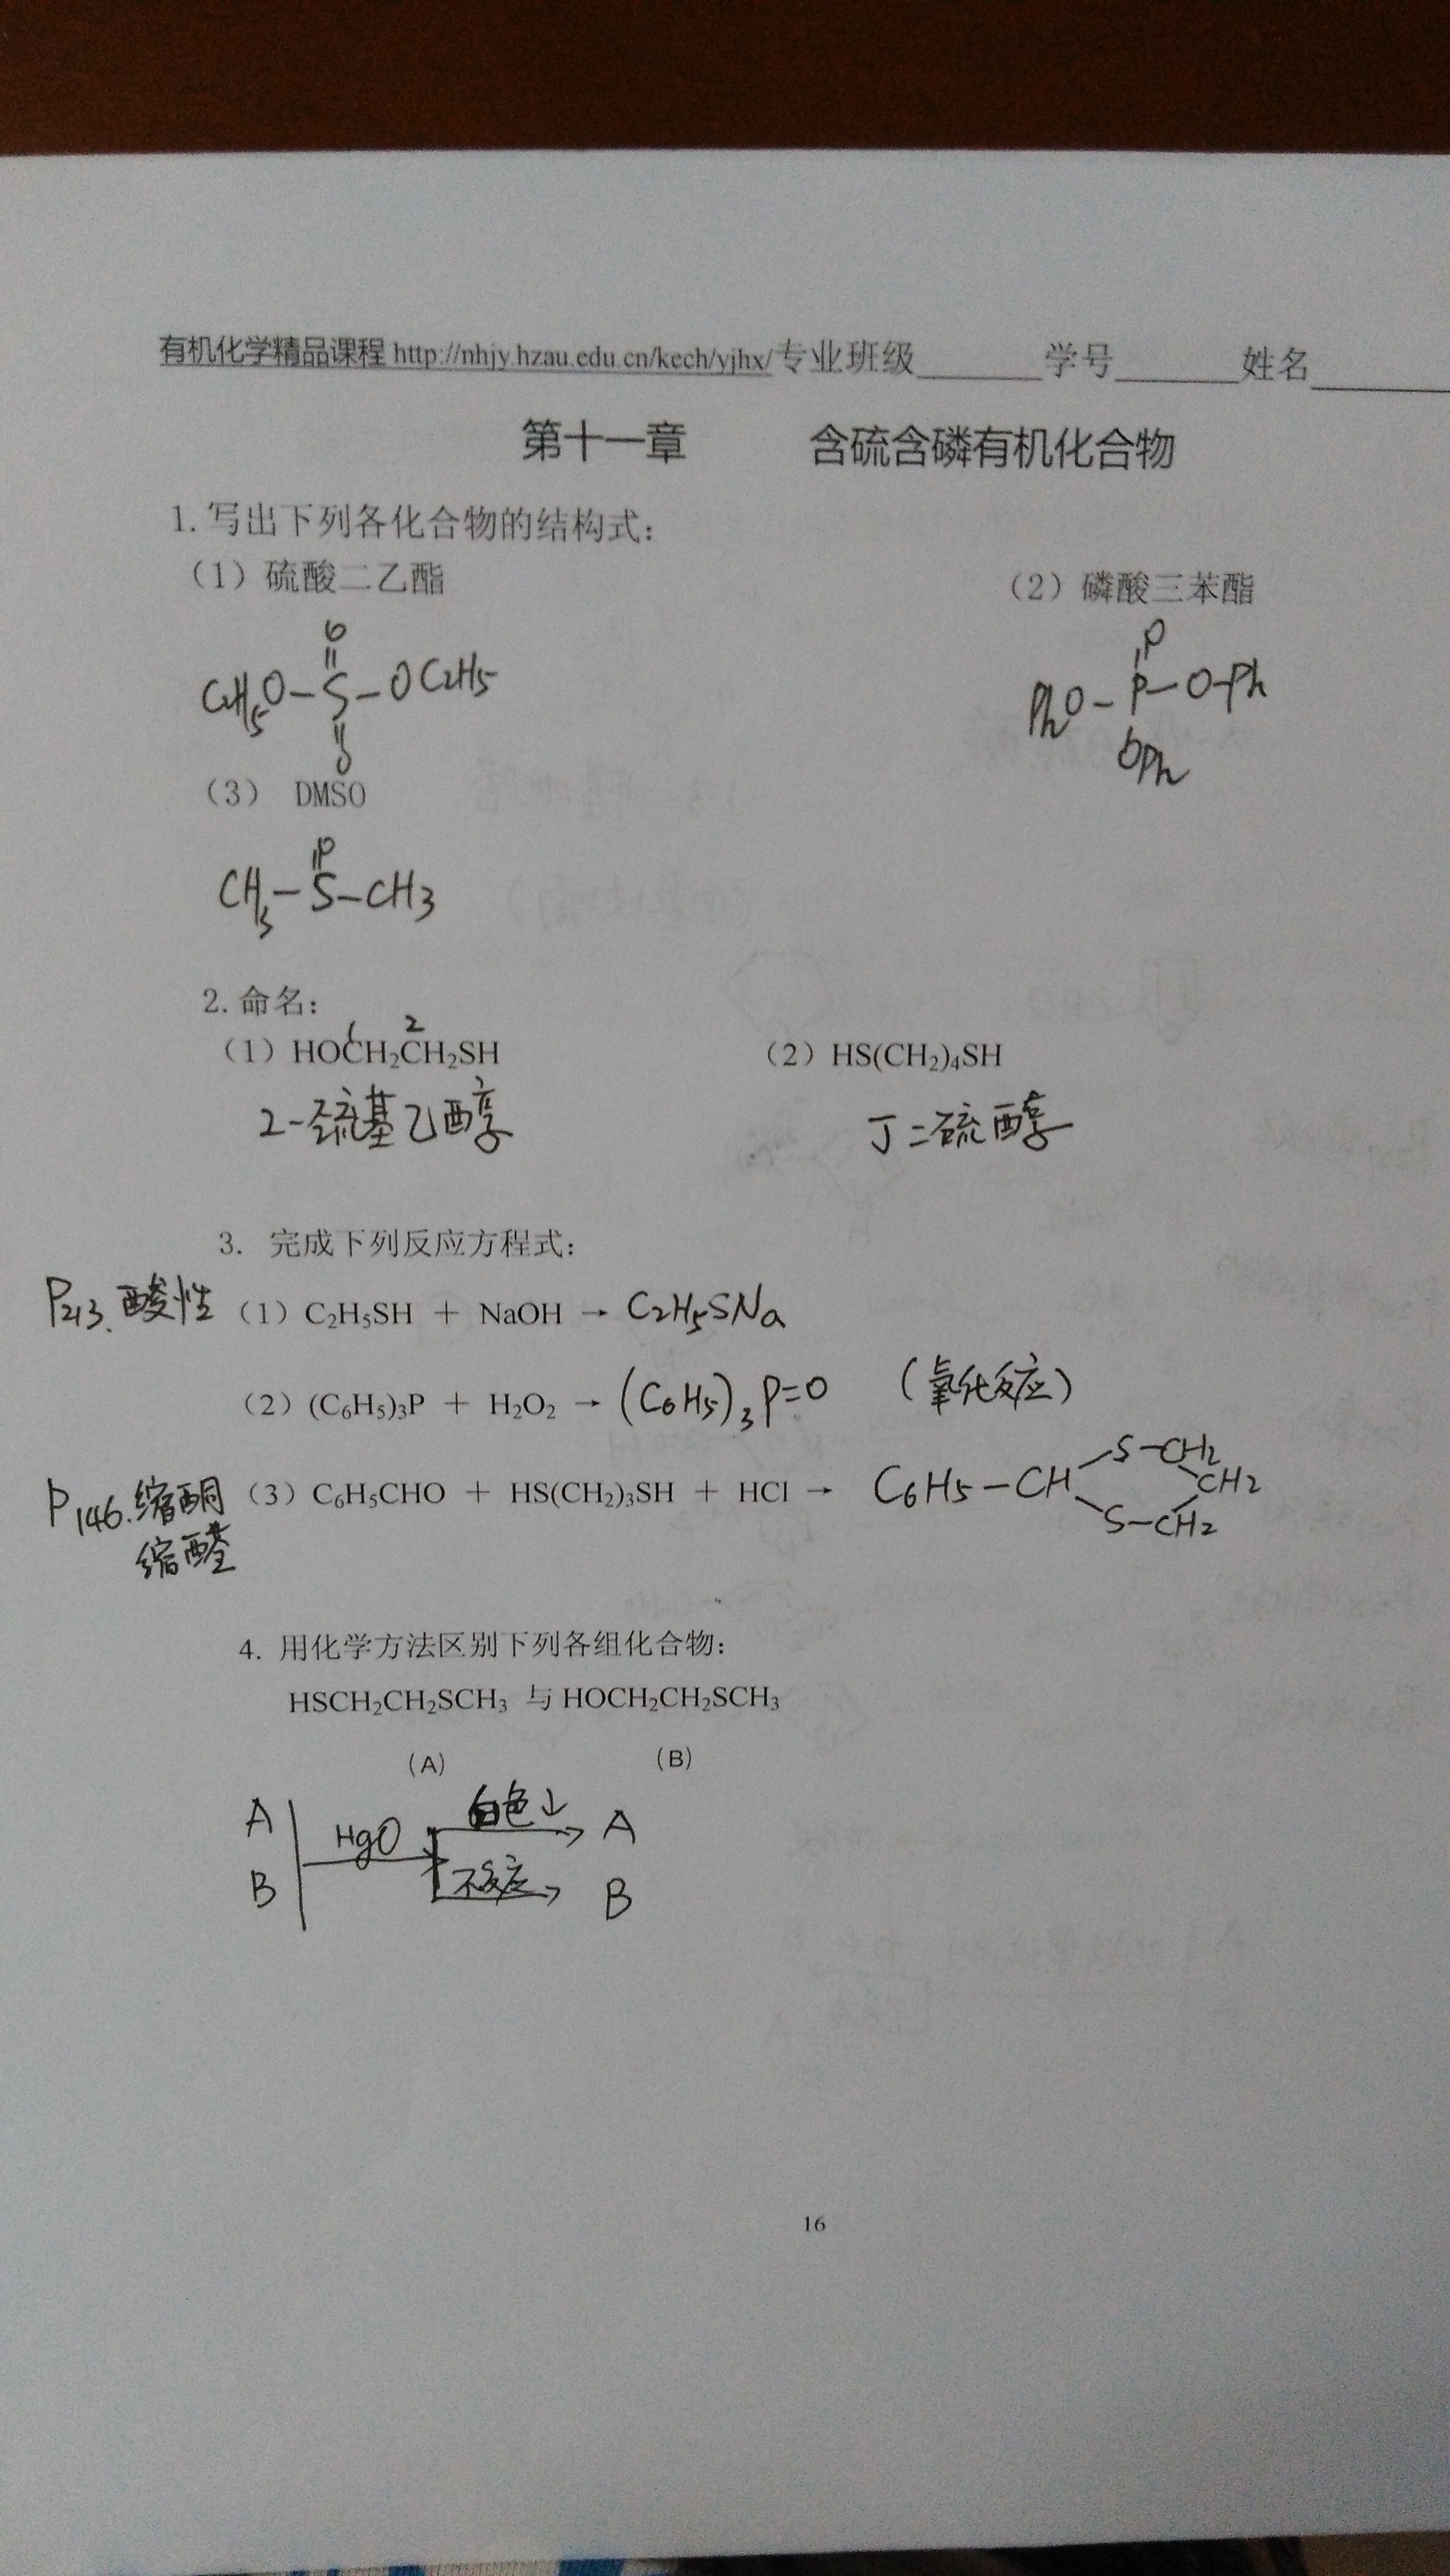 有机化学精品课程 http://nhjy.hzau.edu.cn/kech/yjhx/ 专业班级______学号______姓名______
第十一章 含硫含磷有机化合物
1. 写出下列各化合物的结构式：
（1）硫酸二乙酯 （2）磷酸三苯酯
O O
C₂H₅O－S－OC₂H₅ PhO－P－O－Ph
O OPh
（3） DMSO
O
CH₃－S－CH₃
2. 命名：
1 2
（1）HOCH₂CH₂SH （2）HS(CH₂)₄SH
2-巯基乙醇 丁二硫醇
3. 完成下列反应方程式：
P213. 酸性 （1）C₂H₅SH + NaOH → C₂H₅SNa
（2）(C₆H₅)₃P + H₂O₂ → (C₆H₅)₃P=O （氧化反应）
P146. 缩酮 （3）C₆H₅CHO + HS(CH₂)₃SH + HCl → C₆H₅－CH S－CH₂ CH₂ S－CH₂
缩醛
4. 用化学方法区别下列各组化合物：
HSCH₂CH₂SCH₃ 与 HOCH₂CH₂SCH₃
（A） （B）
A HgO 白色↓ A
B 不反应 B
16